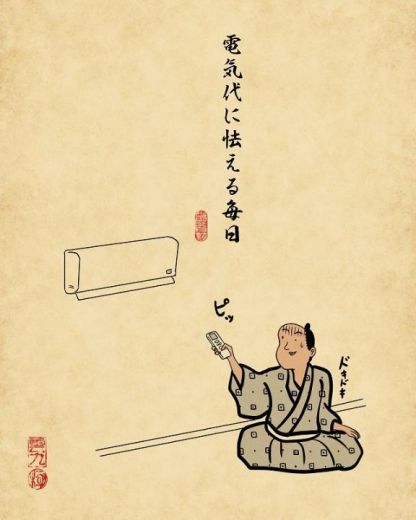 電気代に怯える毎日
ピッ
ドキドキ